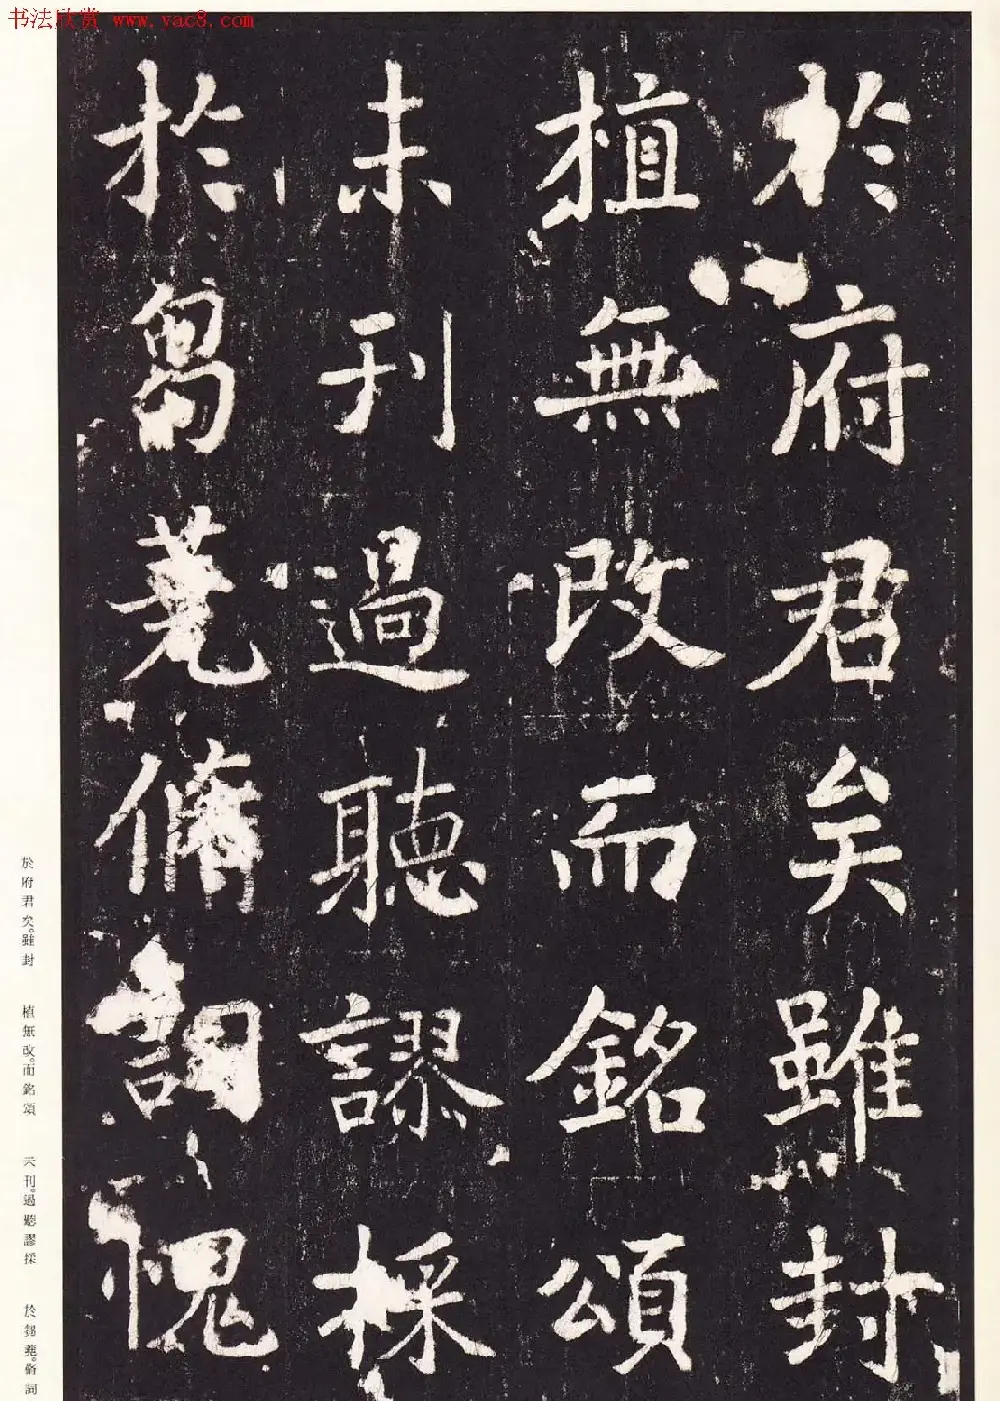 书法欣赏 www.yac8.com
於府君矣雖封
植無改而銘頌
未刊過聽謬採
於芻蕘脩詞愧
於府君矣。雖封
植無改。而銘頌
未刊。過聽謬採
於芻蕘。脩詞